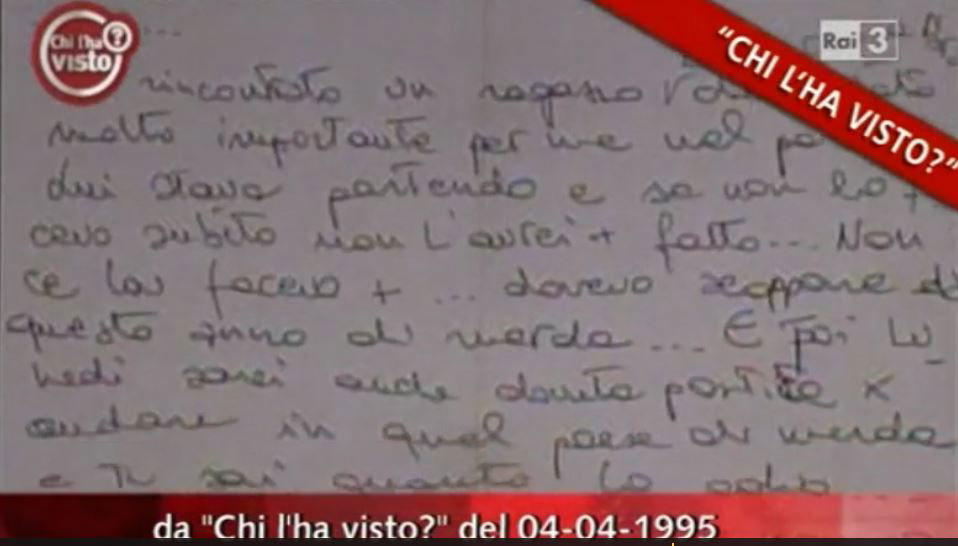 Chi l'ha visto?
Rai 3
"CHI L'HA VISTO?"
...
rincontrato un ragazzo
molto importante per me nel
Lui stava partendo e se non lo
cevo subito non l'avrei + fatto... Non
ce la facevo + ... dovevo scappare
questo anno di merda... E poi Lu
nedi sarei anche dovuta partire x
andare in quel paese di merda
e Tu sai quanto lo odio....
da "Chi l'ha visto?" del 04-04-1995